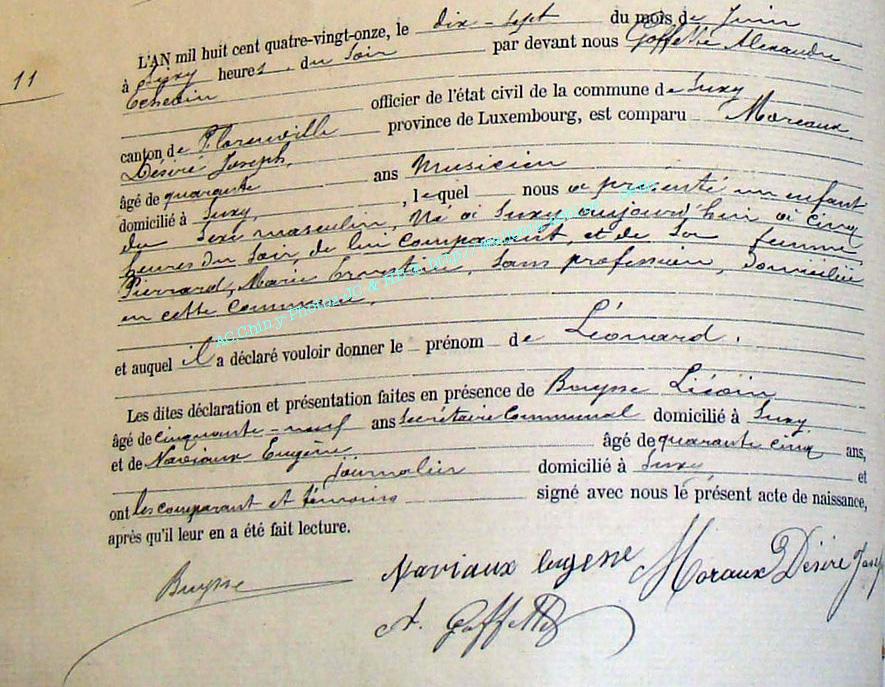 11
L'AN mil huit cent quatre-vingt-onze, le dix-sept du mois de Juin
à heures du soir par devant nous Goffette Alexandre
officier de l'état civil de la commune de Suxy
canton de Florenville province de Luxembourg, est comparu Moreaux,
Désiré Joseph,
âgé de quarante ans Musicien
domicilié à Suxy, , lequel nous a présenté un enfant
du sexe masculin, Né à Suxy aujourd'hui à cinq
heures du soir, de lui comparant, et de sa femme,
Pierrard, Marie Ernestine, sans profession, domiciliée
en cette commune,
et auquel il a déclaré vouloir donner le prénom de Léonard.
Les dites déclaration et présentation faites en présence de Buysse
âgé de cinquante-neuf ans Secrétaire Communal domicilié à Suxy
et de Naviaux Eugène âgé de quarante cinq ans,
journalier domicilié à Suxy et
ont les comparant et témoins signé avec nous le présent acte de naissance,
après qu'il leur en a été fait lecture.
Buysse Naviaux Eugene Moraux Désiré Josep
A. Goffette
AC.Chiny-Photos JC & http://